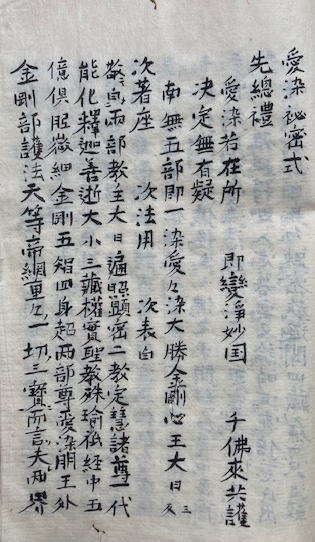 愛染祕密式
先總禮
愛染若在所　即變淨妙国　千佛來共護
決定無有疑
南無五部即一染愛々染大勝金剛心王大日 三反
次著座　次法用　次表白
敬白兩部教主大日遍照顯密二教定慧諸尊一代
能化釋迦善逝大小三藏權實聖教殊瑜祇経中五
億倶胝微細金剛五智四身超兩部尊愛染明王外
金剛部護法天等帝網重々一切三寶而言夫両界